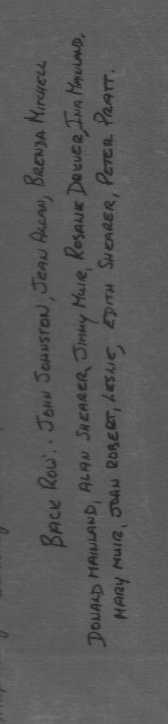 BACK ROW:. JOHN JOHNSTON, JEAN ALLAN, BRENDA MITCHELL
DONALD MAINLAND, ALAN SHEARER, JIMMY MUIR, ROSANE DREVER, INA MAINLAND,
MARY MUIR, JOHN ROBERT, LESLIE, EDITH SHEARER, PETER PRATT.